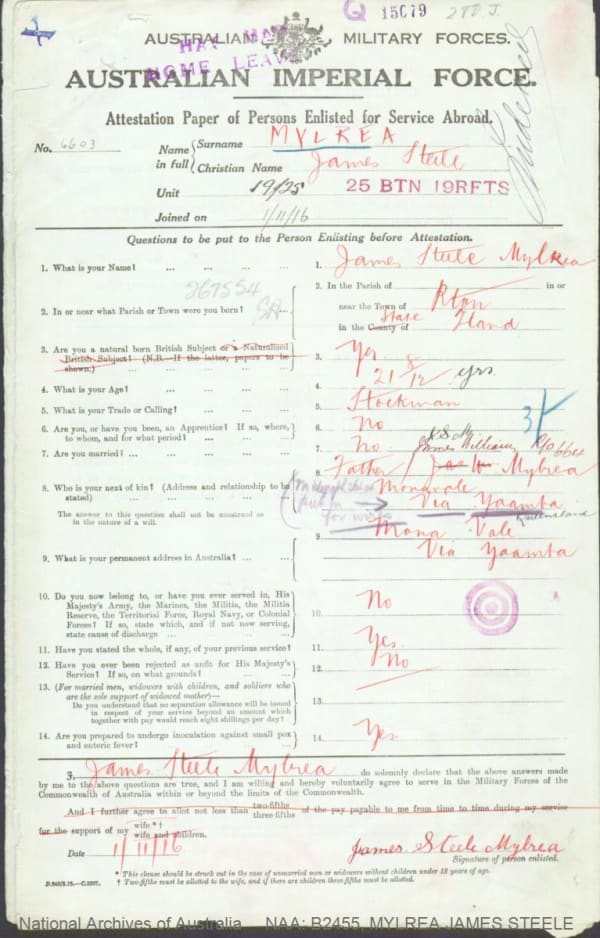 Q 15079 280 J.
AUSTRALIAN MILITARY FORCES.
HAY MAY
HOME LEAVE
AUSTRALIAN IMPERIAL FORCE.
Attestation Paper of Persons Enlisted for Service Abroad.
No. 6603
Name in full
Surname MYLREA
Christian Name James Steele
Unit 19/25 25 BTN 19RFTS
Joined on 1/11/16
Questions to be put to the Person Enlisting before Attestation.
1. What is your Name? ... ... ... 1. James Steele Mylrea
267554
2. In or near what Parish or Town were you born? ... 2. In the Parish of in or
near the Town of Rton
in the County of State Qland
3. Are you a natural born British Subject or a Naturalized
British Subject? (N.B.—If the latter, papers to be
shown.) 3. Yes
4. What is your Age? ... ... ... 4. 21 8/12 yrs.
5. What is your Trade or Calling? ... ... 5. Stockman
6. Are you, or have you been, an Apprentice? If so, where,
to whom, and for what period? ... ... 6. No
7. Are you married? ... ... ... 7. No
James William
8. Who is your next of kin? (Address and relationship to be
stated) ... ... 8. Father Jas W Mylrea
Monavale
Via Yaamba
Queensland
The answer to this question shall not be construed as
in the nature of a will.
for wife
9. What is your permanent address in Australia? ... ... 9. Mona Vale
Via Yaamba
10. Do you now belong to, or have you ever served in, His
Majesty's Army, the Marines, the Militia, the Militia
Reserve, the Territorial Force, Royal Navy, or Colonial
Forces? If so, state which, and if not now serving,
state cause of discharge ... ... ... 10. No
11. Have you stated the whole, if any, of your previous service? 11. Yes
12. Have you ever been rejected as unfit for His Majesty's
Service? If so, on what grounds? ... ... 12. No
13. (For married men, widowers with children, and soldiers who
are the sole support of widowed mother)—
Do you understand that no separation allowance will be issued
in respect of your service beyond an amount which
together with pay would reach eight shillings per day? 13.
14. Are you prepared to undergo inoculation against small pox
and enteric fever? ... ... ... 14. Yes
I, James Steele Mylrea do solemnly declare that the above answers made
by me to the above questions are true, and I am willing and hereby voluntarily agree to serve in the Military Forces of the
Commonwealth of Australia within or beyond the limits of the Commonwealth.
And I further agree to allot not less than two-fifths three-fifths of the pay payable to me from time to time during my service
for the support of my wife.*† wife and children.
Date 1/11/16 James Steele Mylrea
Signature of person enlisted.
* This clause should be struck out in the case of unmarried men or widowers without children under 18 years of age.
† Two-fifths must be allotted to the wife, and if there are children three-fifths must be allotted.
National Archives of Australia NAA: B2455, MYLREA JAMES STEELE